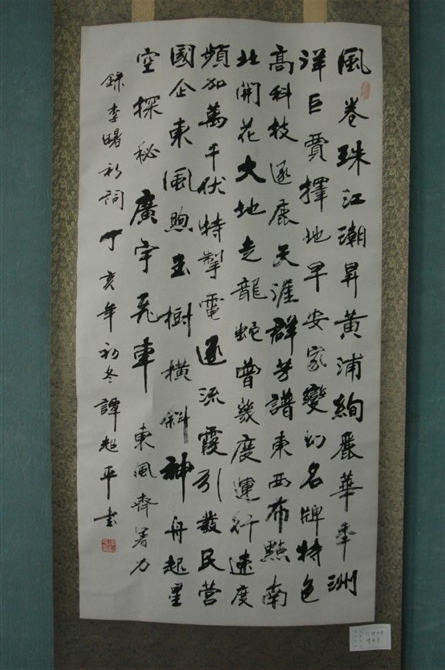 風卷珠江潮昇黃浦絢麗華亭洲
洋巨賈擇地早安家變幻名牌特色
高科技逐鹿天涯群芳譜東西布點南
北開花大地走龍蛇曾幾度運行速度
頻加萬千伏特掣電逐流霞引叢民營
國企東風煦玉樹橫斜神舟起星
空探秘廣宇飛車東風齊著力
錄李曙初詞丁亥年初冬譚超平書